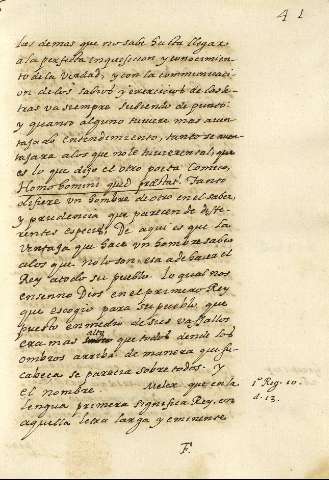 41
las demas que no sabe hasta llegar
a la perfecta inquesicion y conocimien
to de la verdad, y con la communicaci
on de los sabios y exercicios de las le
tras va siempre subiendo de punto:
y quanto alguno tuviere mas aven
tajado entendimiento, tanto se aven
tajara a los que no le tuvieren tal; que
es lo que dijo el otro poeta Comico,
Homo homini quid præstat. Tanto
difiere un hombre de otro en el saber,
y prudencia que parecen de dife
rentes especies. De aqui es que la
ventaja que hace un hombre sabio
a los que no lo son, esa a de hacer el
Rey a todo su pueblo. Lo qual nos
enseño Dios en el primero Rey
que escogio para su pueblo, que
puesto en medio de sus vasallos
era mas alto que todos dende los
ombros arriba de manera que su
cabeça se parecia sobre todos. y
el nombre Melex que en la
lengua primera significa Rey, con
aquella letra larga y eminente
1º Reg. 10.
d. 13.
F.